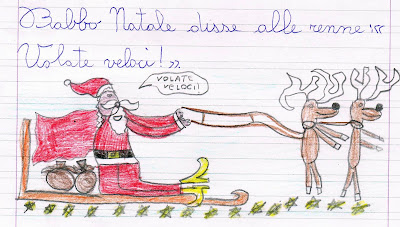 Babbo Natale disse alle renne «
Volate veloci!»
VOLATE
VELOCI!